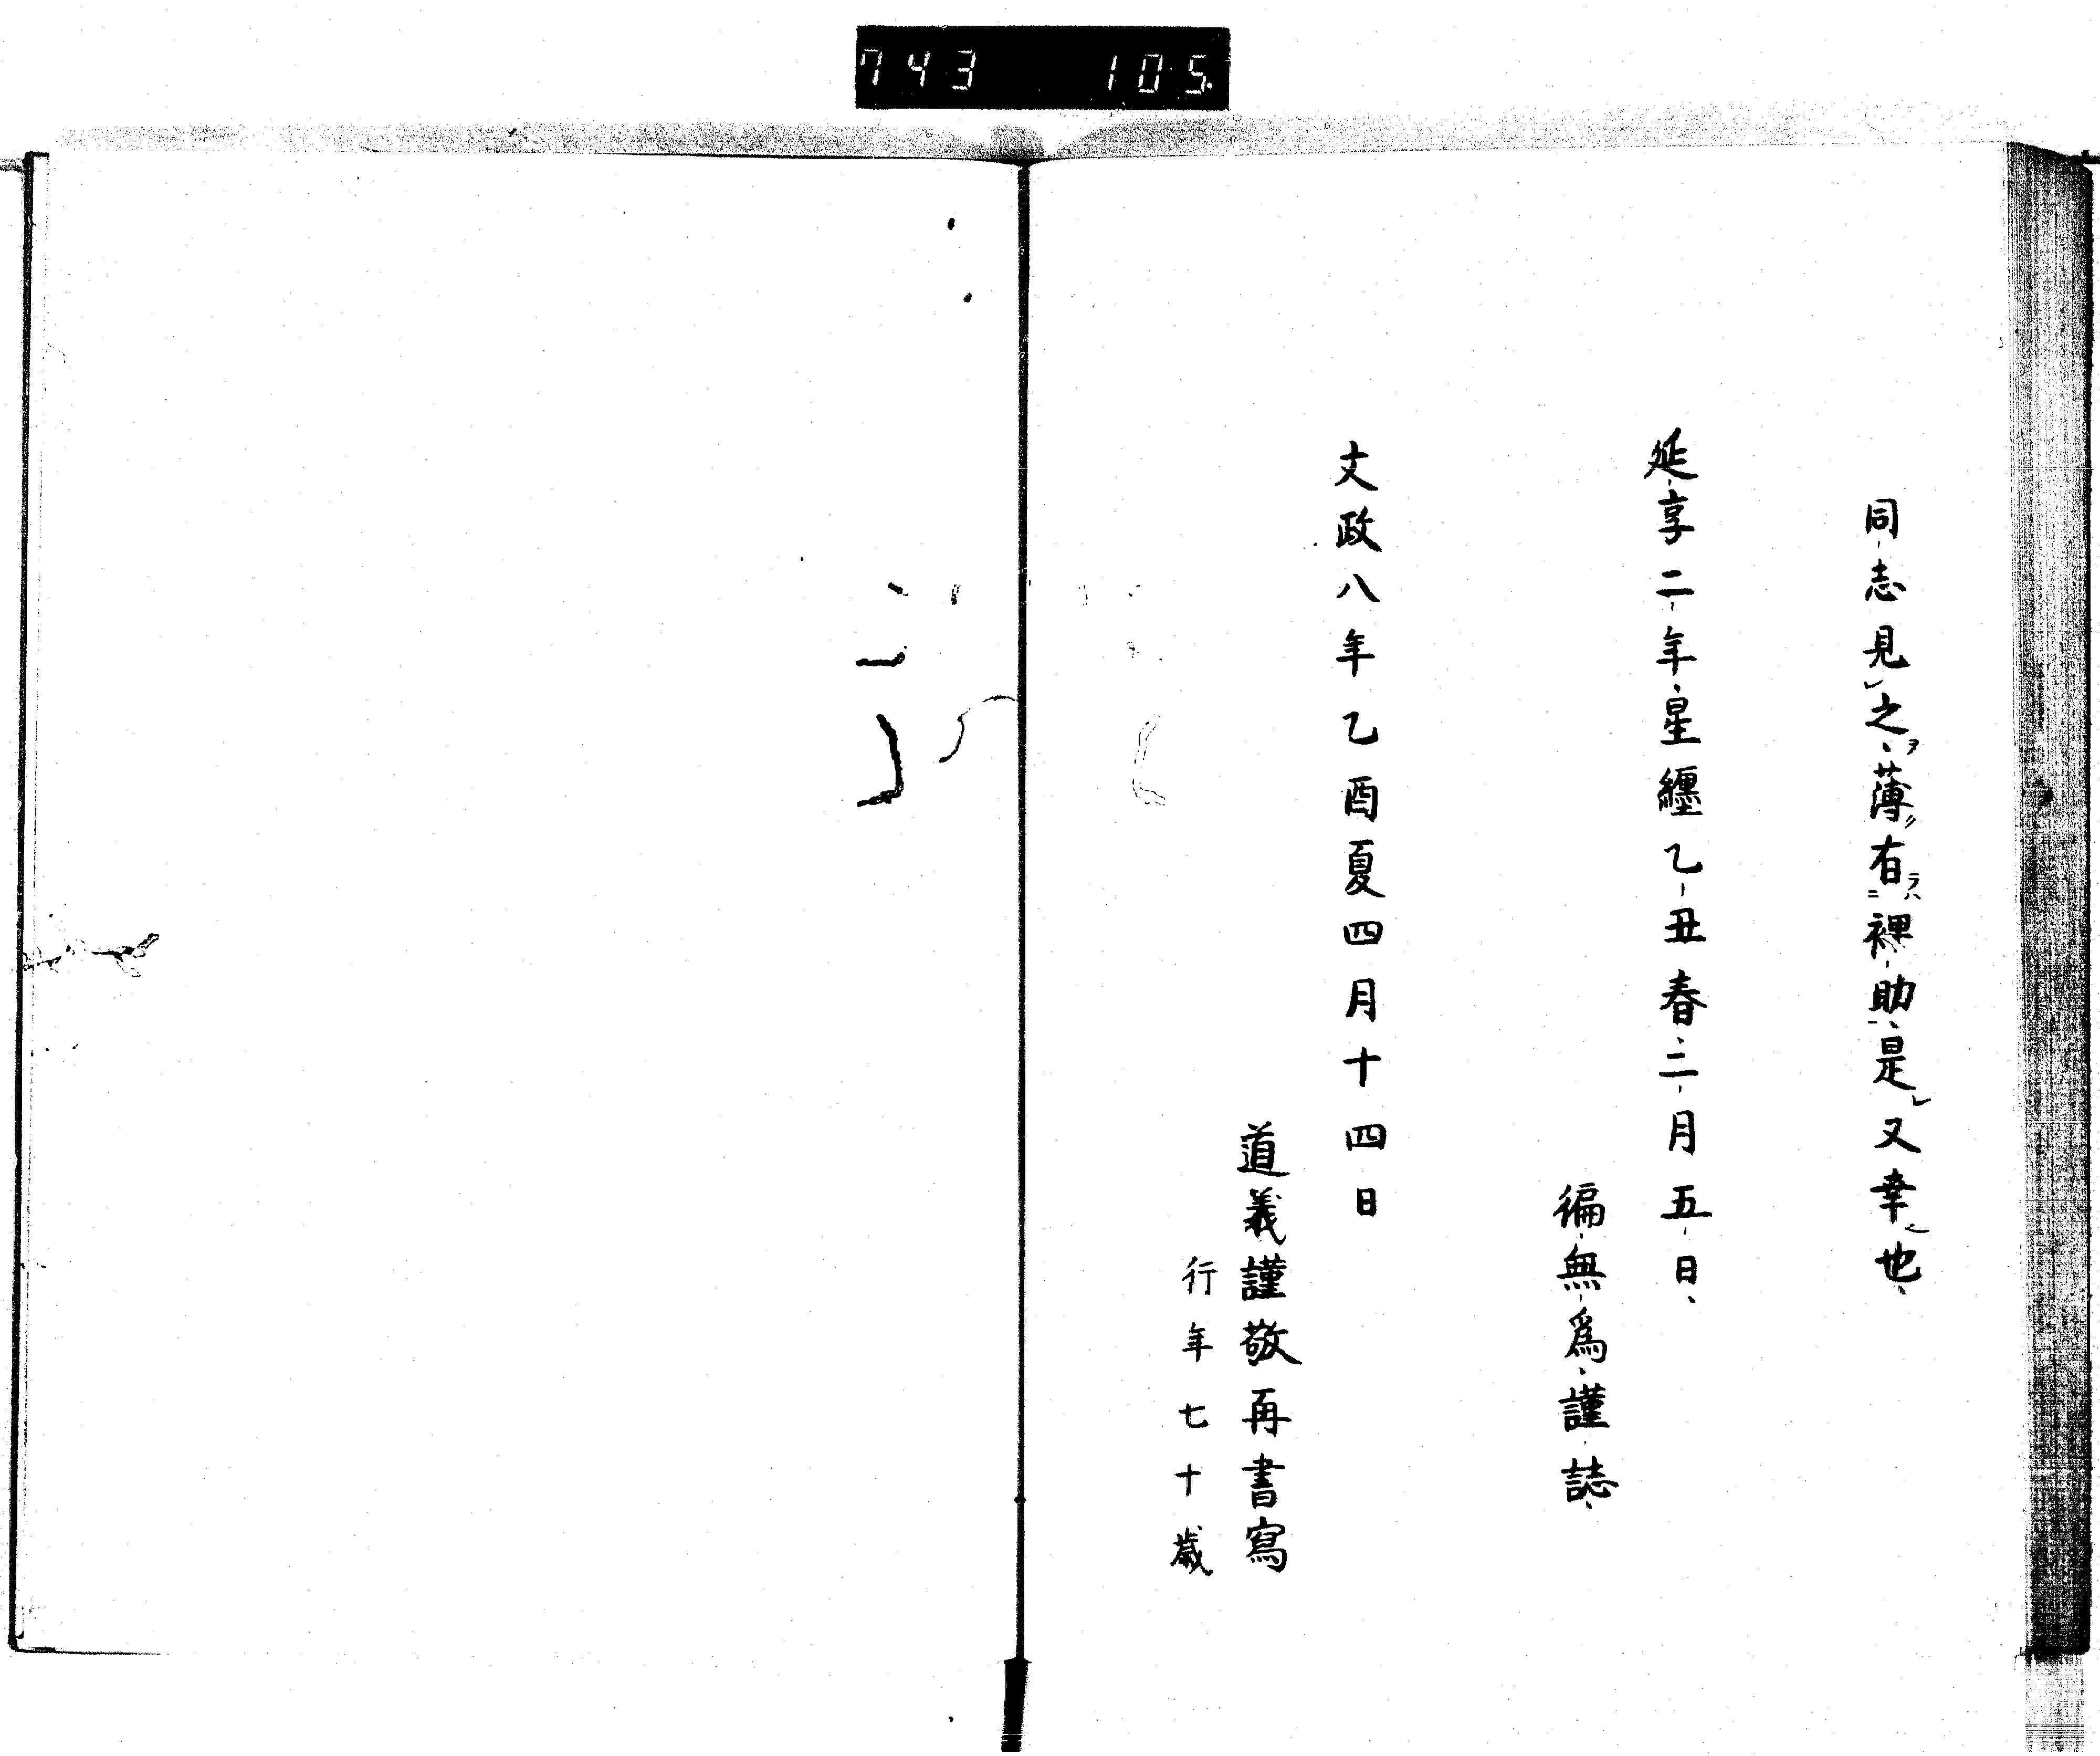 743 105
同志見之ヲ薄有ラハ裨助是又幸也
延享二年星纏乙丑春二月五日
徧無爲謹誌
文政八年乙酉夏四月十四日
道義謹敬再書寫
行年七十歳